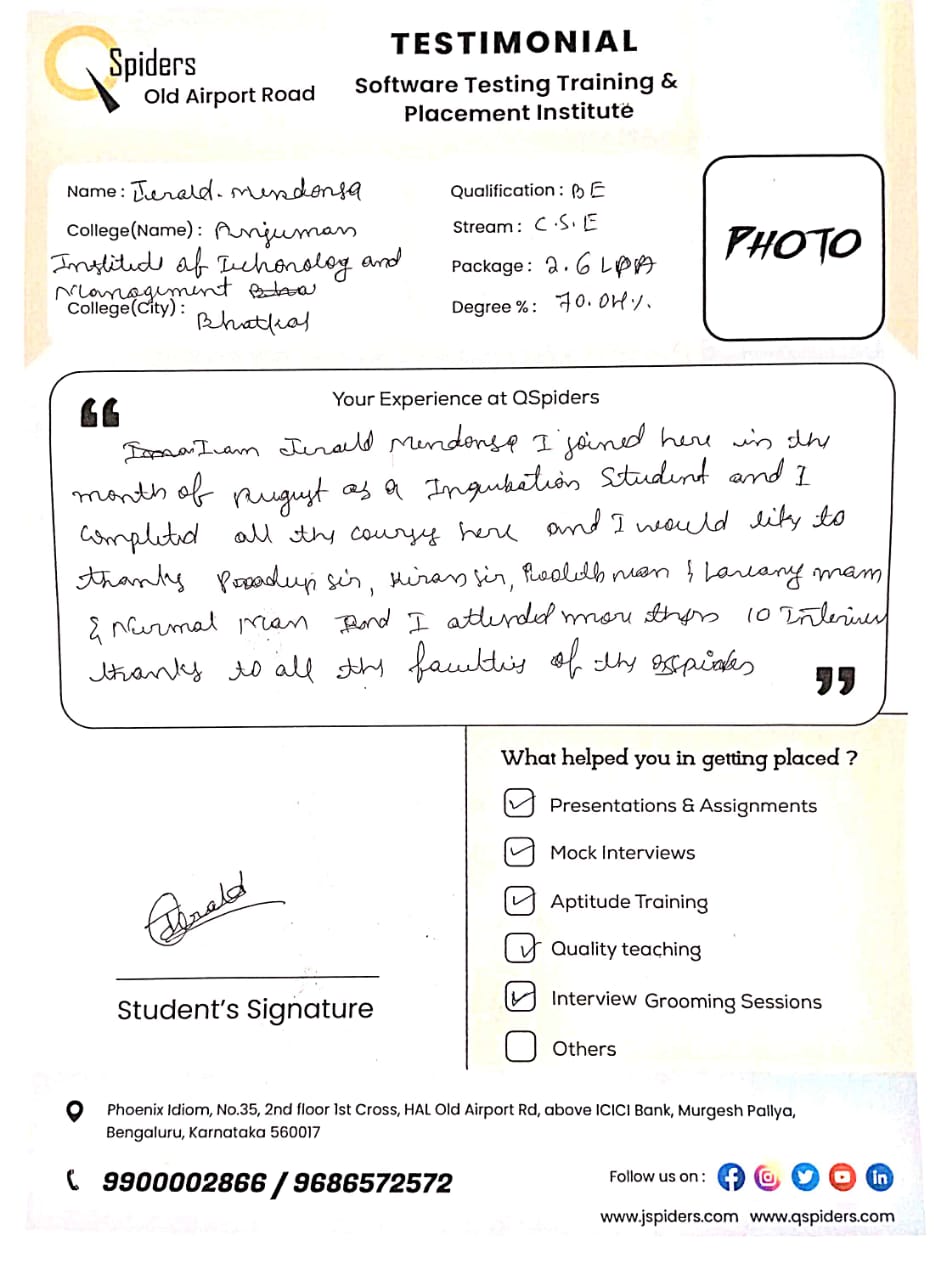 QSpiders
Old Airport Road
TESTIMONIAL
Software Testing Training &
Placement Institute
Name: Jerald. Mendonsa
College(Name): Anjuman
Institute of Technology and
Management
College(City): Bhatkal
Qualification: BE
Stream: C.S.E
Package: 2.6 LPA
Degree %: 70.04%.
PHOTO
Your Experience at QSpiders
I am Jerald Mendonsa I joined here in the
month of August as a Ingubation Student and I
Completed all the course here and I would like to
thanks sir, Kiran sir, mam & mam
& Nirmal Mam And I attended more then 10 Interview
thanks to all the faculties of the qspiders
What helped you in getting placed ?
Presentations & Assignments
Mock Interviews
Aptitude Training
Quality teaching
Interview Grooming Sessions
Others
Jerald
Student's Signature
Phoenix Idiom, No.35, 2nd floor 1st Cross, HAL Old Airport Rd, above ICICI Bank, Murgesh Pallya,
Bengaluru, Karnataka 560017
9900002866 / 9686572572
Follow us on :
www.jspiders.com www.qspiders.com